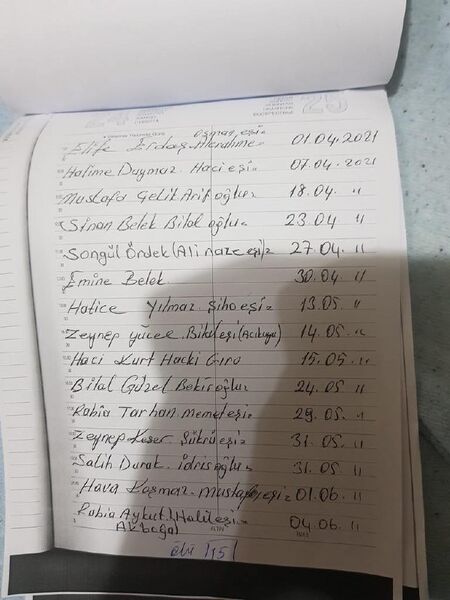 Osman eşi=
Elife Erdaş 01.04.2021
Halime Duymaz Haci eşi= 07.04.2021
Mustafa Çelik Arif oğlu= 18.04. "
Sinan Belek Bilal oğlu= 23.04 "
Songül Öndek (Ali naze eşi)= 27.04. "
Emine Belek 30.04 "
Hatice Yılmaz Şiho eşi= 13.05. "
Zeynep yücel 14.05 "
Haci Kurt Hacki Giro 15.05. "
Bilal Güzel Bekiroğlu= 24.05 "
Rabia Tarhan memet eşi= 29.05. "
Zeynep Koser Şükrü eşi= 31.05 "
Salih Durak idris oğlu= 31.05 "
Hava Koşmaz Mustafa eşi= 01.06 "
Rabia Aykut (Halil eşi= 04.06. "
Akboğa)
ölü 15